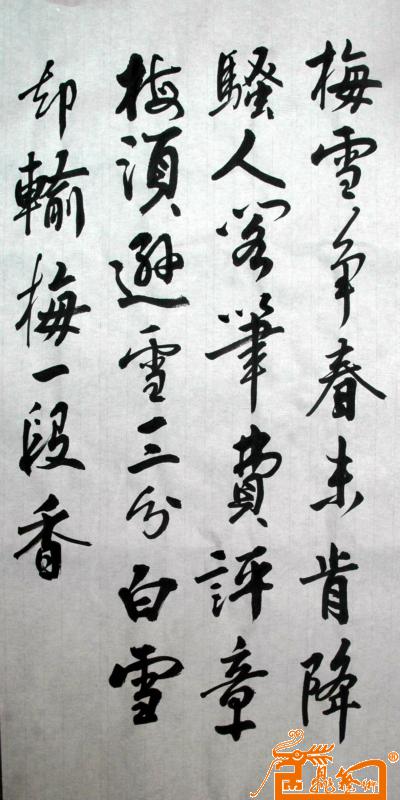 梅雪争春未肯降
騷人阁筆費評章
梅須遜雪三分白雪
却輸梅一段香